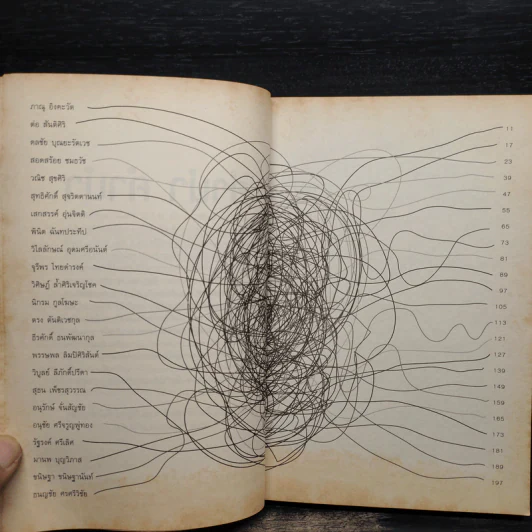 ภาณุ อิงคะวัต
ต่อ สันติศิริ
ดลชัย บุณยะรัตเวช
สอดสร้อย
วณิช สุขศิริ
สุทธิศักดิ์ สุจริตตานนท์
เสกสรรค์ อุ่นจิตติ
พินิต ฉันทประทีป
วิไลลักษณ์ อุดมศรีอนันต์
จุรีพร ไทยดำรงค์
วิศิษฎ์ ล้ำศิริเจริญโชค
นิกรม กูลโฆษะ
ตรง ตันติเวชกุล
ธีรศักดิ์ ธนพัฒนากุล
พรรษพล ลิมปิศิริสันต์
วิบูลย์ ลีภักดิ์ปรีดา
สุธน เพ็ชรสุวรรณ
อนุรักษ์ จั่นสัญชัย
อนุชัย ศรีจรูญพู่ทอง
รัฐรงค์ ศรีเลิศ
มานพ
ชนิษฐา ชนิษฐานันท์
ธนญชัย ศรศรีวิชัย
11
17
23
39
47
55
65
73
81
89
97
105
113
121
127
139
149
159
165
173
181
189
197